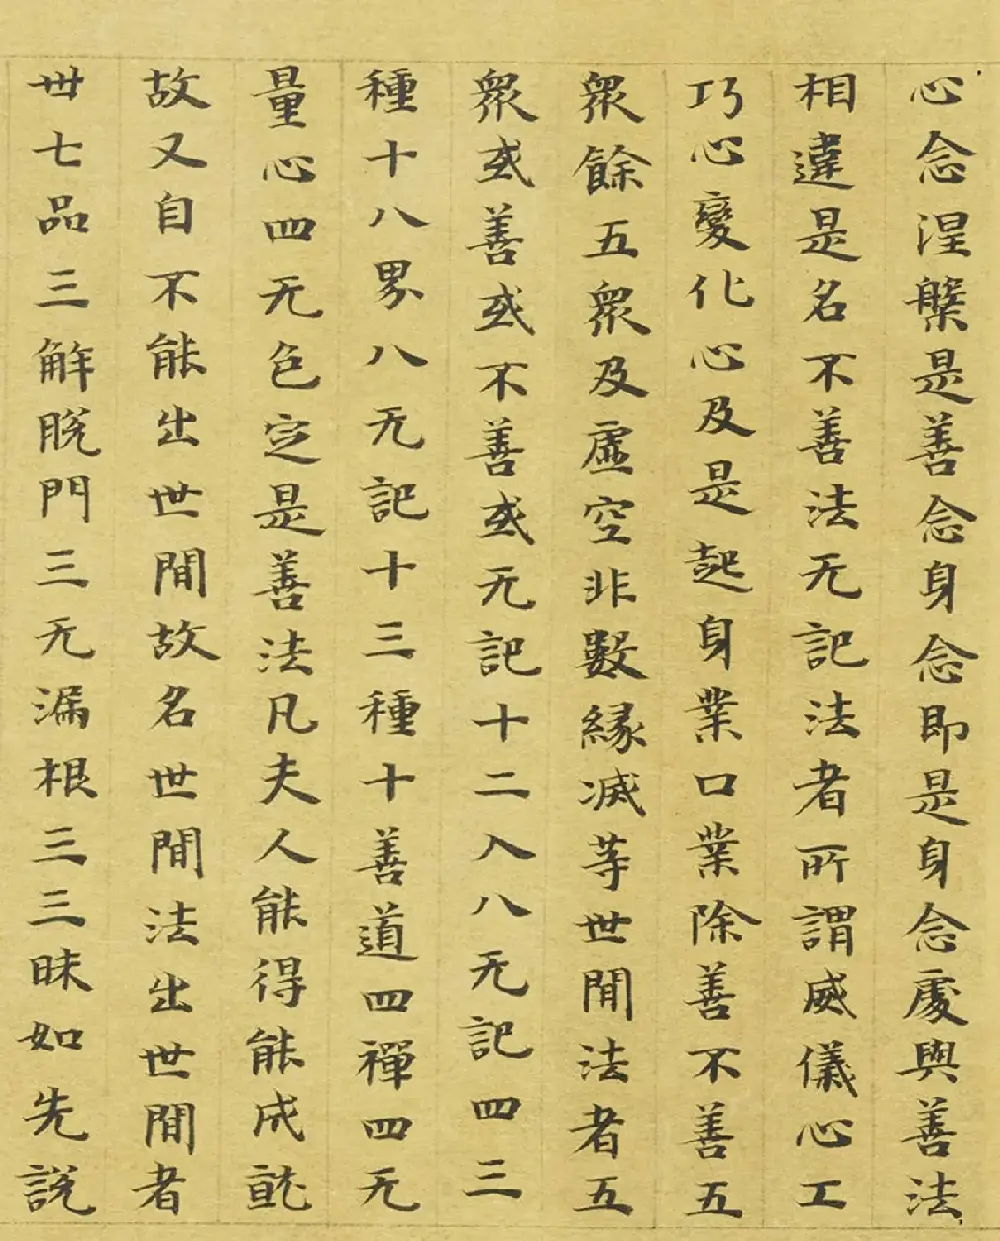 心念涅槃是善念身念即是身念處與善法
相違是名不善法无記法者所謂威儀心工
巧心變化心及是起身業口業除善不善五
衆餘五衆及虛空非數緣滅等世間法者五
衆或善或不善或无記十二入八无記四三
種十八界八无記十三種十善道四禪四无
量心四无色定是善法凡夫人能得能成就
故又自不能出世間故名世間法出世間者
卌七品三解脫門三无漏根三三昧如先說